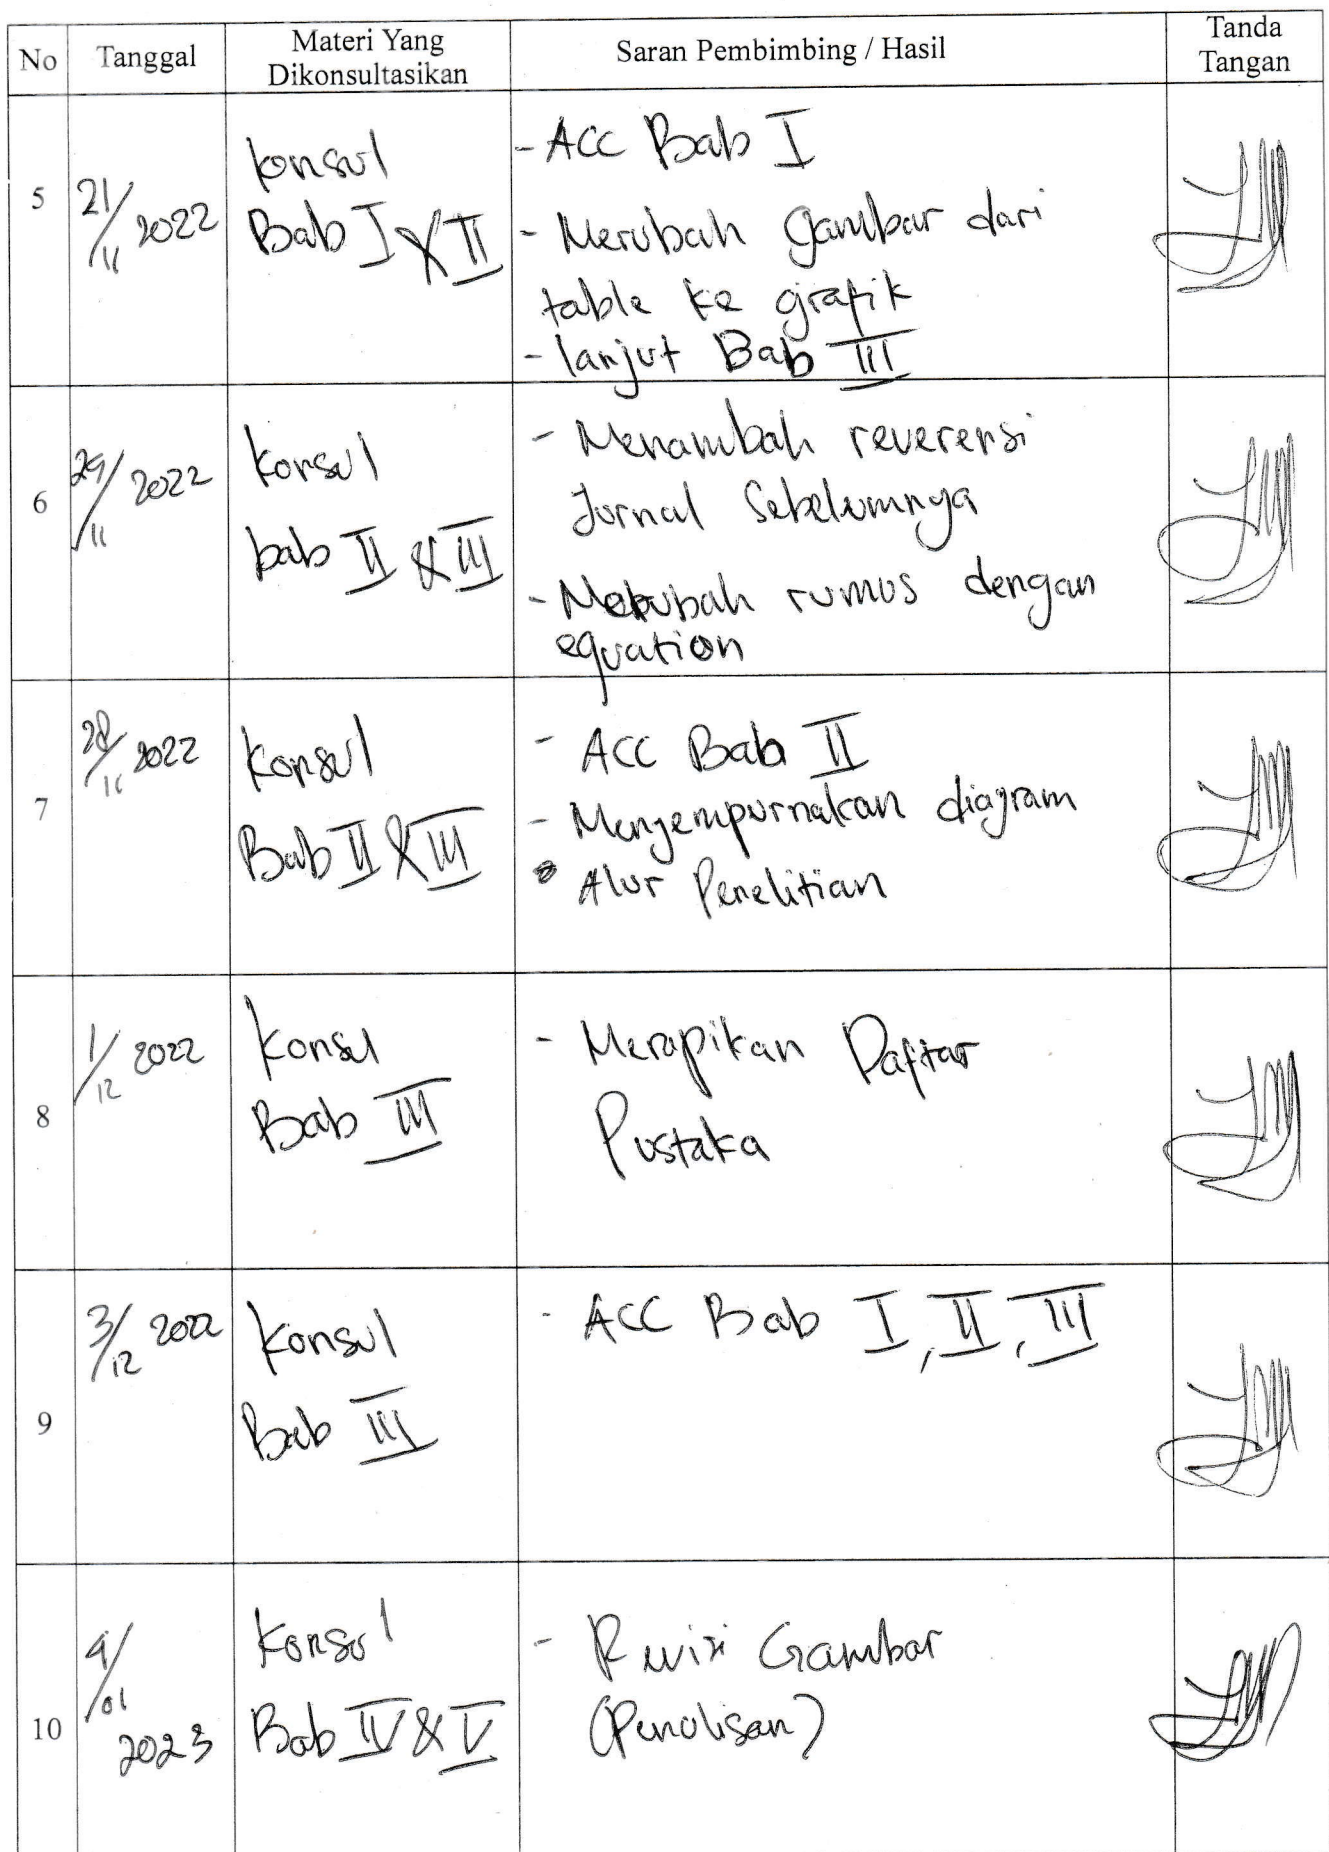 No Tanggal Materi Yang Dikonsultasikan Saran Pembimbing / Hasil Tanda Tangan
5 21/11 2022
Konsul
Bab I & II
- ACC Bab I
- Merubah gambar dari
table ke grafik
- lanjut Bab III
6 29/11 2022
Konsul
bab II & III
- Menambah reverensi
Jurnal Sebelumnya
- Merubah rumus dengan
equation
7 28/11 2022
Konsul
Bab II & III
- ACC Bab II
- Menyempurnakan diagram
Alur Penelitian
8 1/12 2022
Konsul
Bab III
- Merapikan Daftar
Pustaka
9 3/12 2022
Konsul
Bab III
- ACC Bab I, II, III
10
/01
2023
Konsul
Bab IV & V
- Revisi Gambar
(Penulisan)